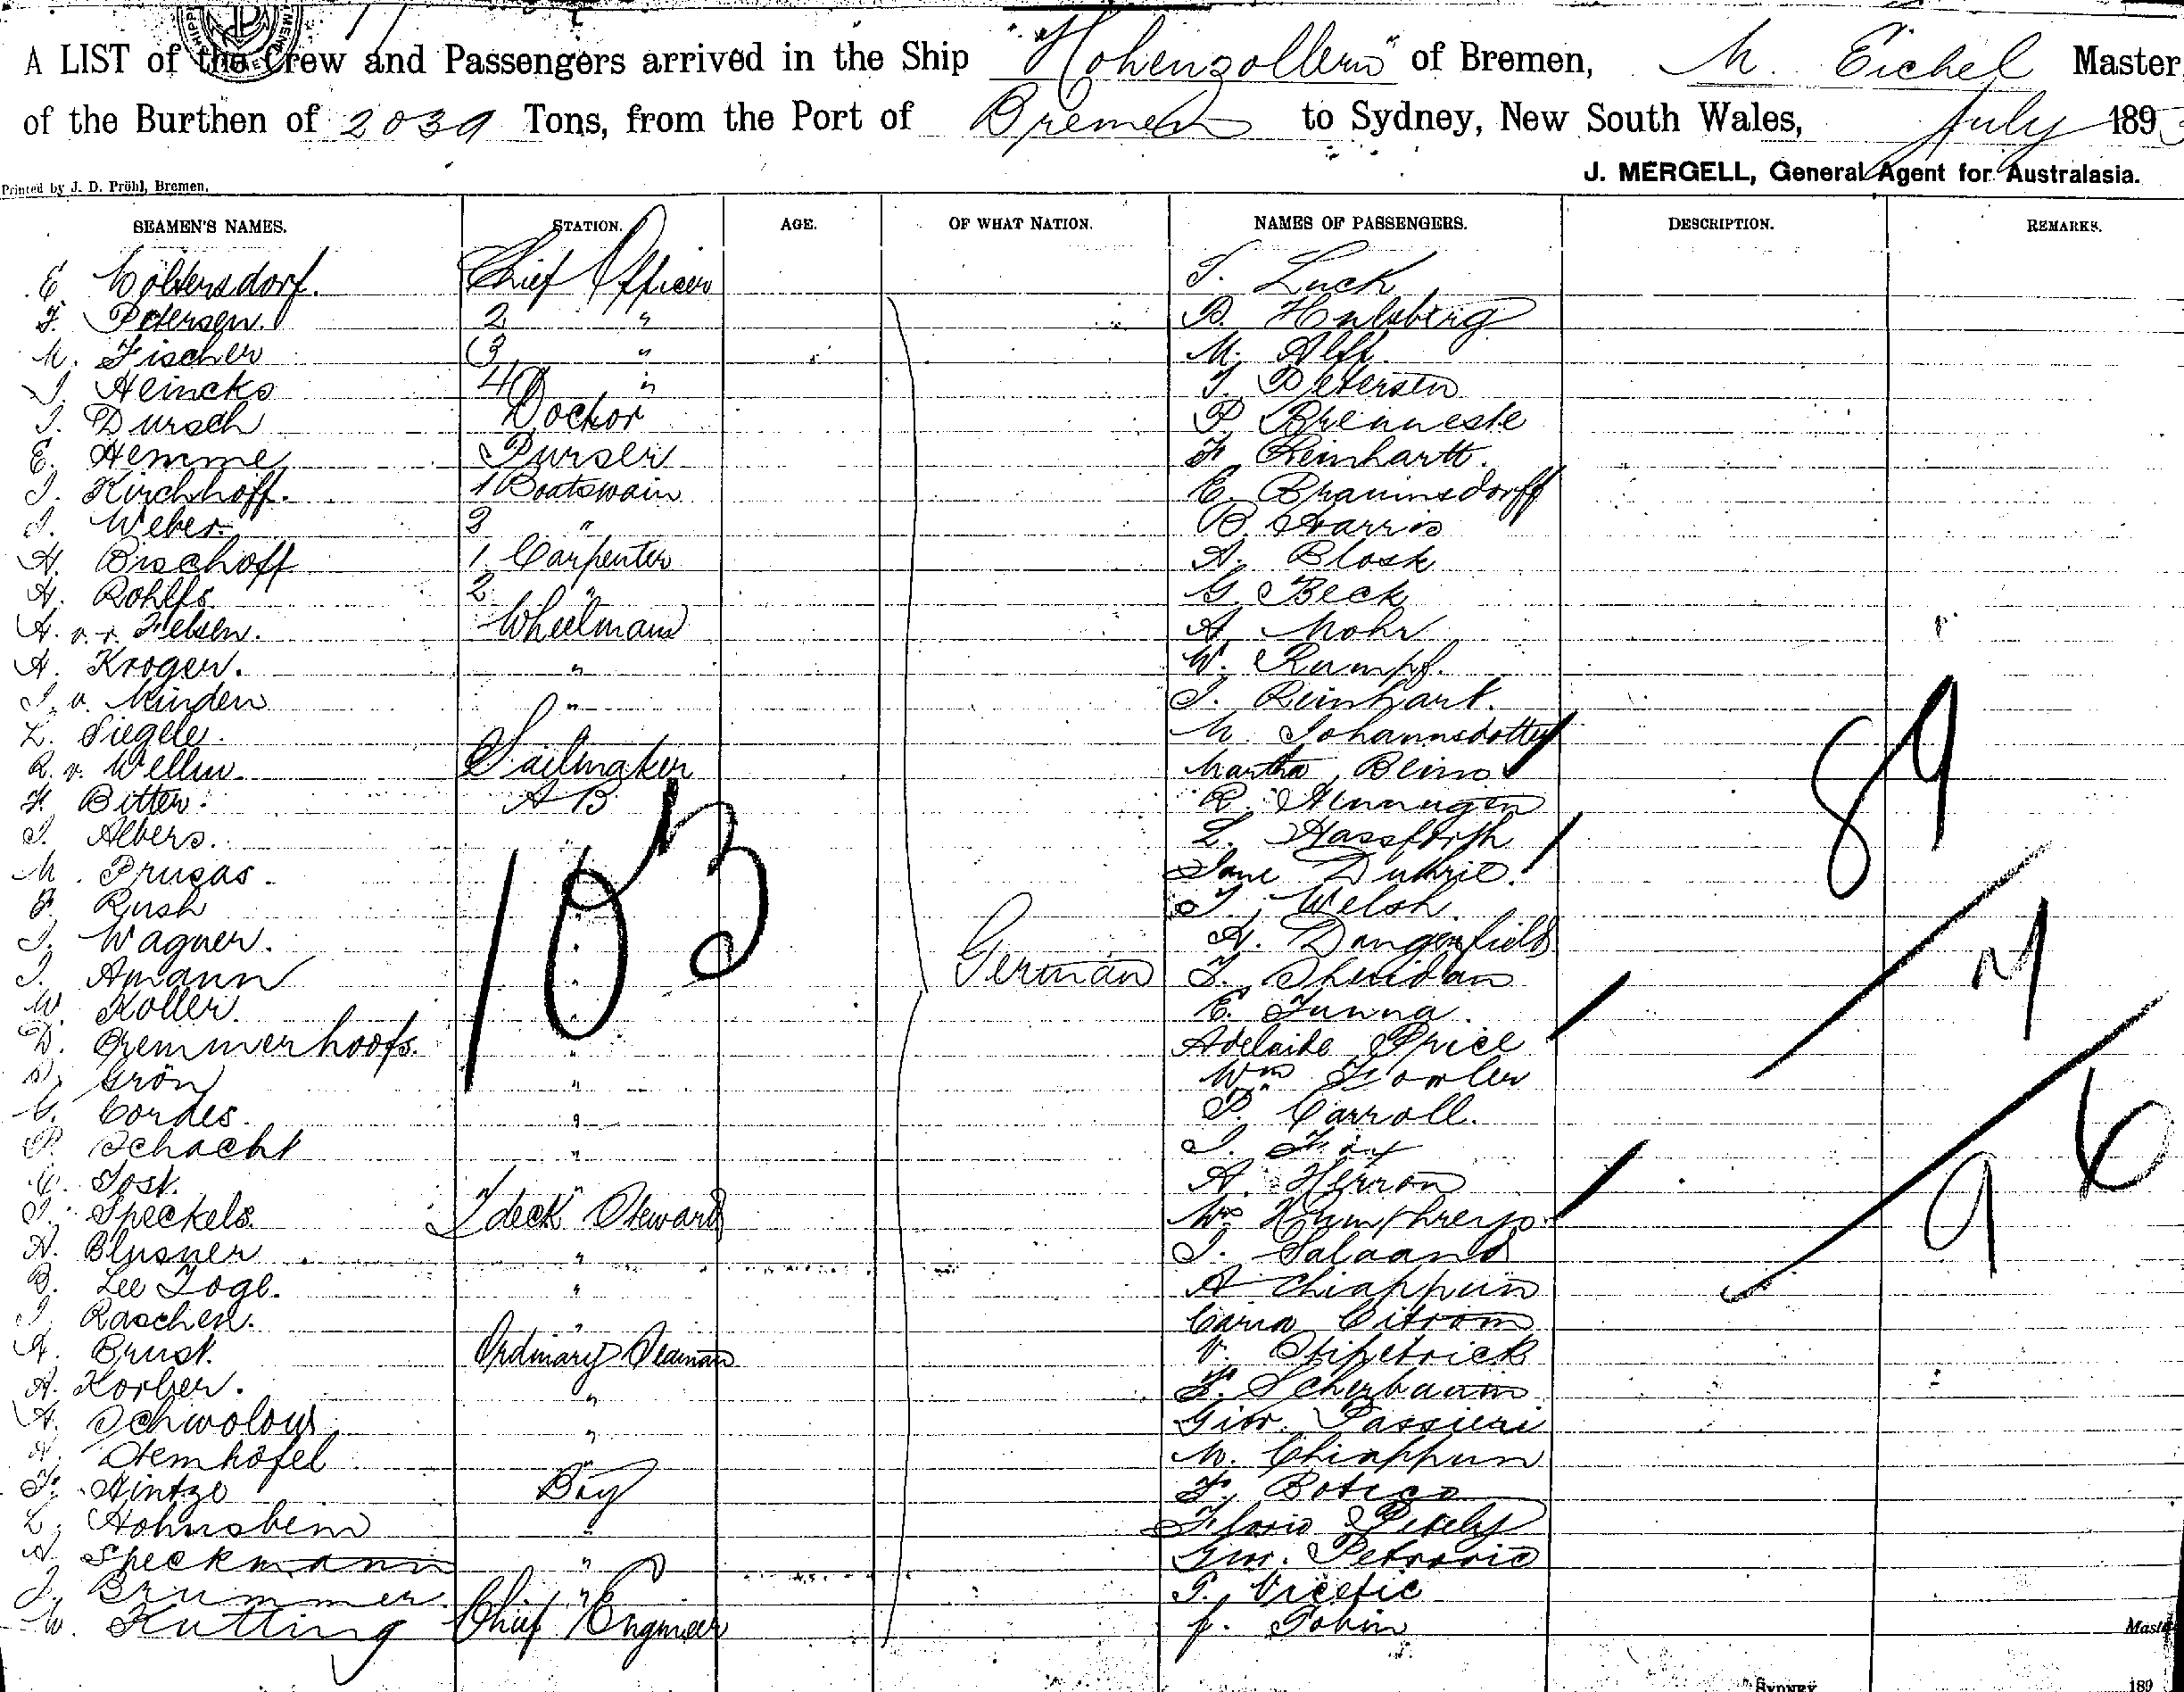 A LIST of the Crew and Passengers arrived in the Ship "Hohenzollern" of Bremen, M. Eichel Master
of the Burthen of 2039 Tons, from the Port of Bremen to Sydney, New South Wales, July 1893
J. MERGELL, General Agent for Australasia.
Printed by J. D. Pröhl, Bremen.
SEAMEN'S NAMES. STATION. AGE. OF WHAT NATION. NAMES OF PASSENGERS. DESCRIPTION. REMARKS.
E. Woltersdorf. Chief Officer T. Luck
F. Petersen. 2 " B. Hulsberg
M. Fischer 3 " M. Alff.
J. Heincks 4 " T. Petersen
J. Dursch Doctor P. Brenneste
E. Hemme Purser F. Reinhartt.
J. Kirchhoff. 1 Boatswain E. Braunsdorff
J. Weber. 2 " B. Harris
H. Bischoff 1 Carpenter A. Block
H. Rohlfs. 2 " G. Beck
A. v. r. Felsen. Wheelman A. Mohr
A. Kroger. " W. Rumpf.
J. v. Minden " J. Reinhart.
L. Siegele. M. Johannsdotter
R. v. Wellen. Sailmaker Martha
F. Bitter. A B R. Henningen
J. Albers. L. Hassforth
M. Prusas. Jane Duthrie.
F. Rush J. Welsh.
J. Wagner. " A. Dangerfield
J. Amann " German T. Sheridan
W. Koller. " E. Tunna.
D. Gremmerhoofs. " Adelaide Price
D. Grön " Wm Fowler
C. Cordes. " P. Carroll.
P. Schacht " J. Fox
C. Jost. " A. Herron
J. Speckels. T deck Steward Wm Humphreys.
A. Blusner " J. Salaand
B. Lee Togl. " A Chiappini
J. Raschen. " Citrom
A. Brust. Ordinary Seaman V. Stipetrick
A. Korber. " F. Scherbaum
A. Schwolow " Giov. Passieri
A. Hemhöfel " M. Chiappini
F. Hintze Boy F. Botica
L. Hohnsbein " Florio
A. Speckmann " Giov. Petrovic
J. Brummer. " G. Vicelic
W. Kutting Chief Engineer J. Tobin
103
89
7
96
Master
SYDNEY
189